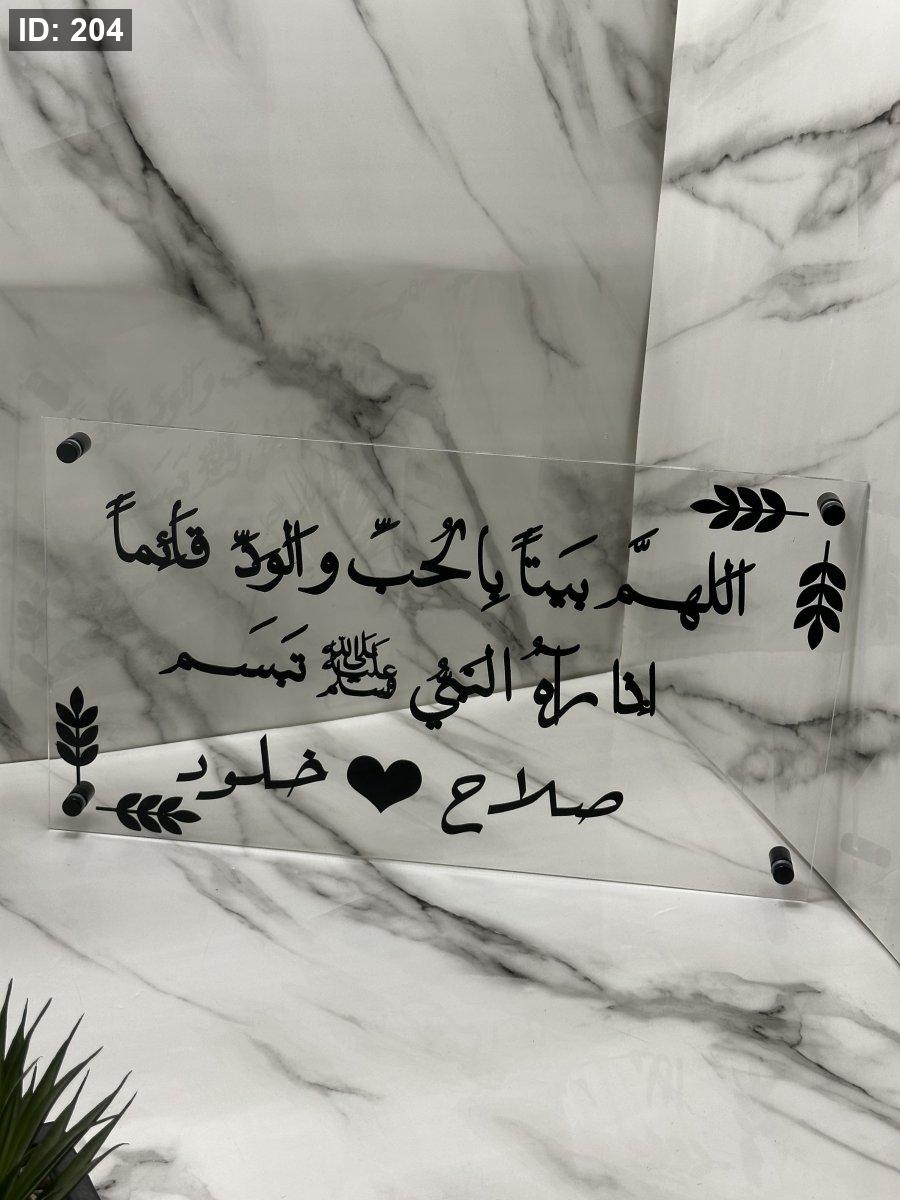 ID: 204
اللهمَّ بيَتاً بِالحُبِّ والودِّ قائِماً
اِذا رآهُ النَبيُّ ﷺ تبَسَم
صلاح ♥ خلود